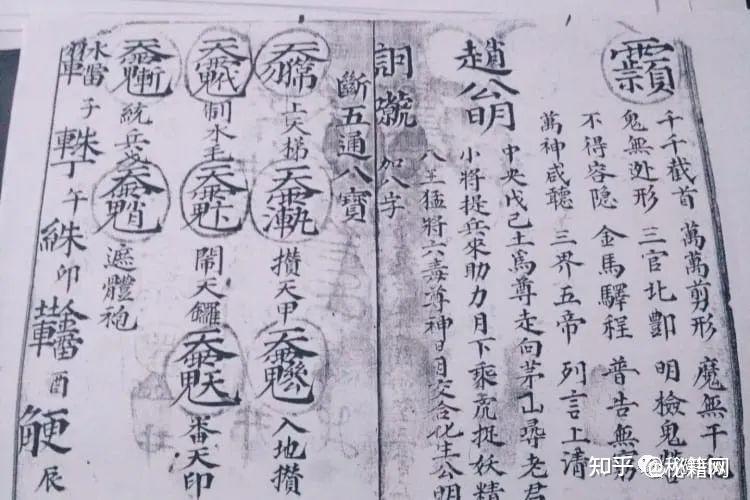 千千截首 萬萬剪形 魔無干
鬼無迯形 三官北酆 明檢鬼
不得容隱 金馬驛程 普告無
萬神咸聽 三界五帝 列言上清
趙公明
中央戊己土為尊走向茅山尋老君
小將提兵來助力月下乘虎捉妖精
八王猛將六毒尊神日月交合化生公明
加八字
斷五通八寶
上天梯 攢天甲 入地攢
制水毛 鬧天鑼 番天印
統兵 遮體袍
子 午 卯 酉 辰
知乎 @秘籍网